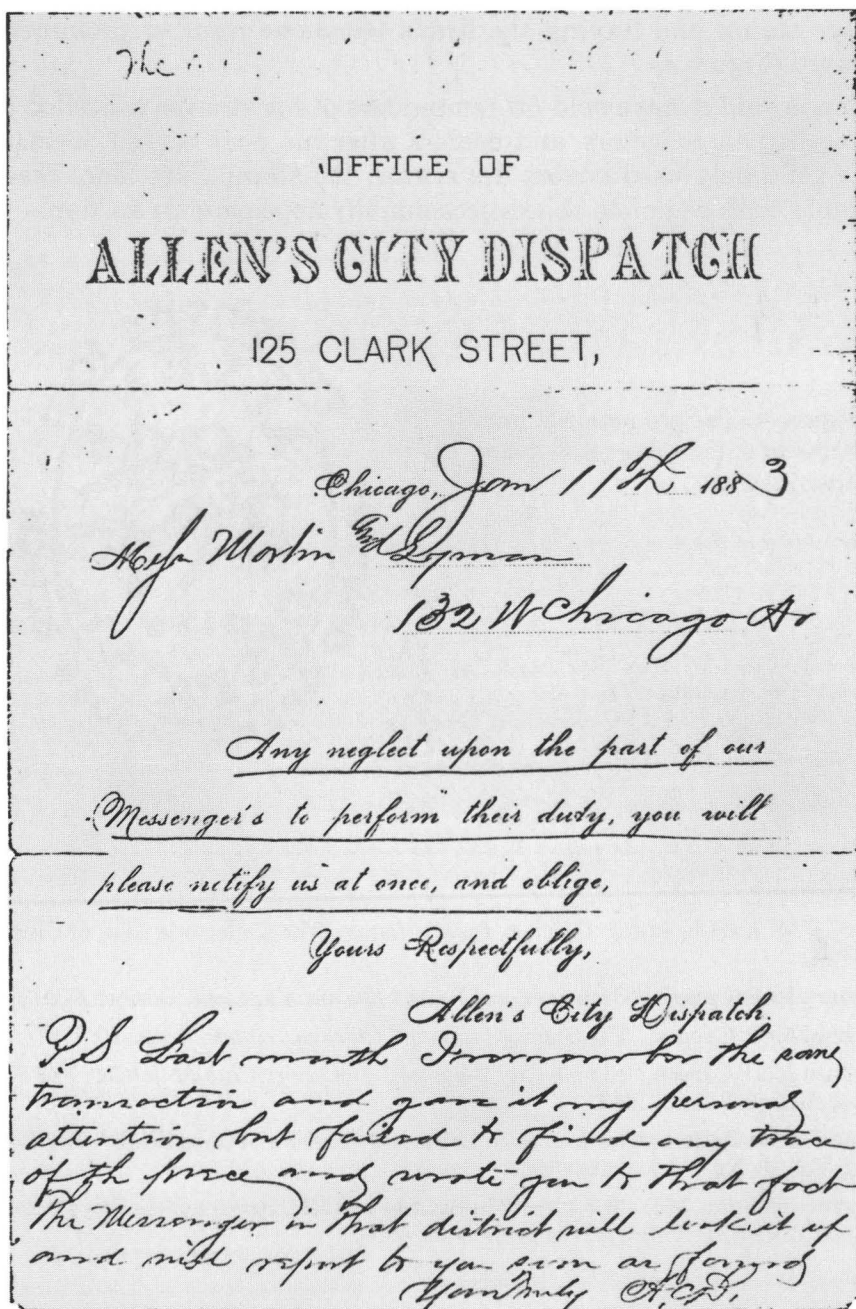 The
OFFICE OF
ALLEN'S CITY DISPATCH
125 CLARK STREET,
Chicago, Jan 11th 1883
Messr Martin and Lyman
132 W Chicago Av
Any neglect upon the part of our
Messenger's to perform their duty, you will
please notify us at once, and oblige,
Yours Respectfully,
Allen's City Dispatch.
P S Last month I rememeber the same
transaction and gave it my personal
attention but failed to find any trace
of th piece and wrote you to that fact
The Messenger in that district will look it up
and will report to you soon as found
Yours Truly A.C.D.